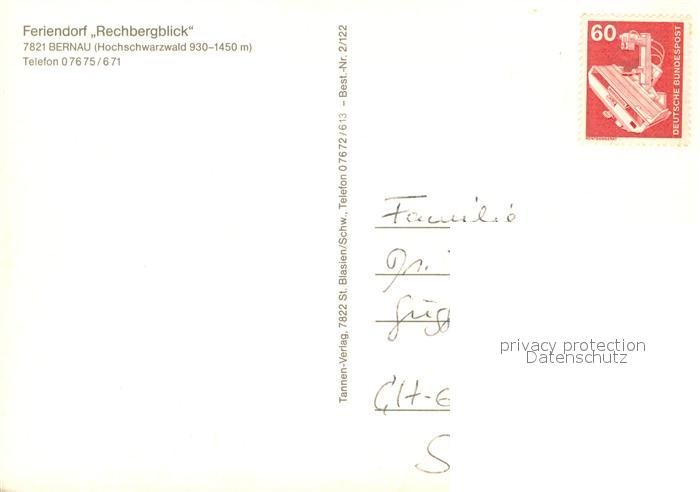 Feriendorf „Rechbergblick“
7821 BERNAU (Hochschwarzwald 930–1450 m)
Telefon 0 76 75 / 6 71
Tannen-Verlag, 7822 St. Blasien/Schw., Telefon 0 76 72 / 613 – Best.-Nr. 2/122
60
DEUTSCHE BUNDESPOST
Familie
CH-
S
privacy protection
Datenschutz